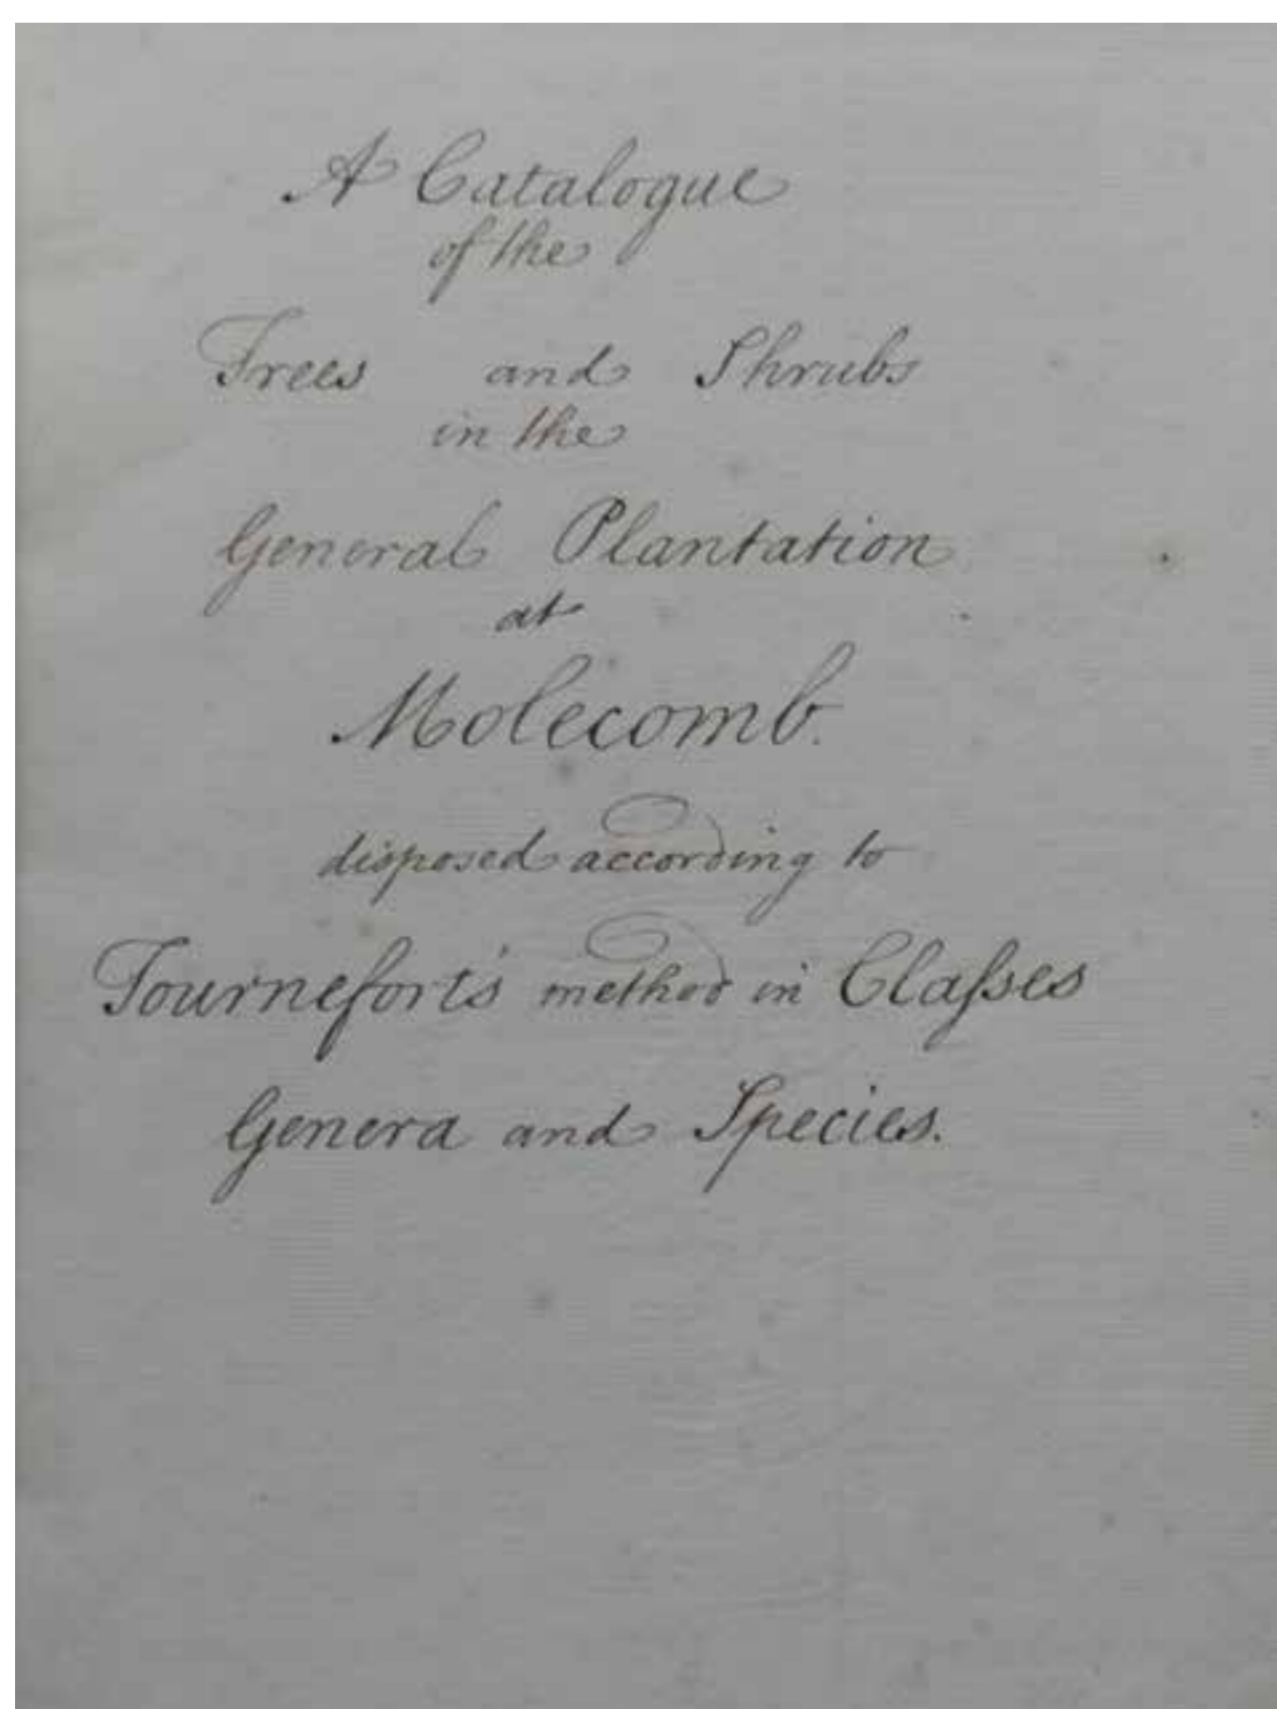 A Catalogue
of the
Trees and Shrubs
in the
General Plantation
at
Molecomb.
disposed according to
Tournefort's method in Claſses
Genera and Species.